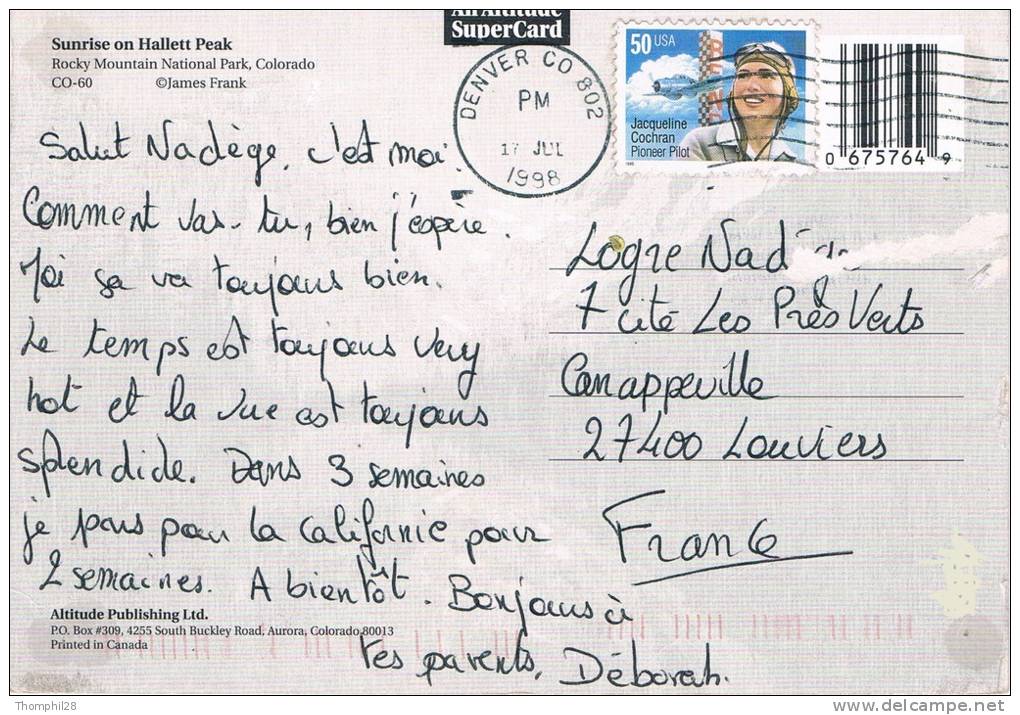 An Altitude
SuperCard
Sunrise on Hallett Peak
Rocky Mountain National Park, Colorado
CO-60 ©James Frank
DENVER CO 802
PM
17 JUL
1998
50 USA
Jacqueline
Cochran
Pioneer Pilot
0 675764 9
Salut Nadège, c'est moi.
Comment vas-tu, bien j'éspère.
Moi sa va toujours bien.
Le temps est toujours very
hot et la vue est toujours
splendide. Dans 3 semaines
je pars pour la Californie pour
2 semaines. A bientôt. Bonjours à
tes parents. Déborah.
Logre Nadège
7 cité Les Près Verts
Canappeville
27400 Louviers
France
Altitude Publishing Ltd.
P.O. Box #309, 4255 South Buckley Road, Aurora, Colorado 80013
Printed in Canada
Thomphil28
delcampe.net